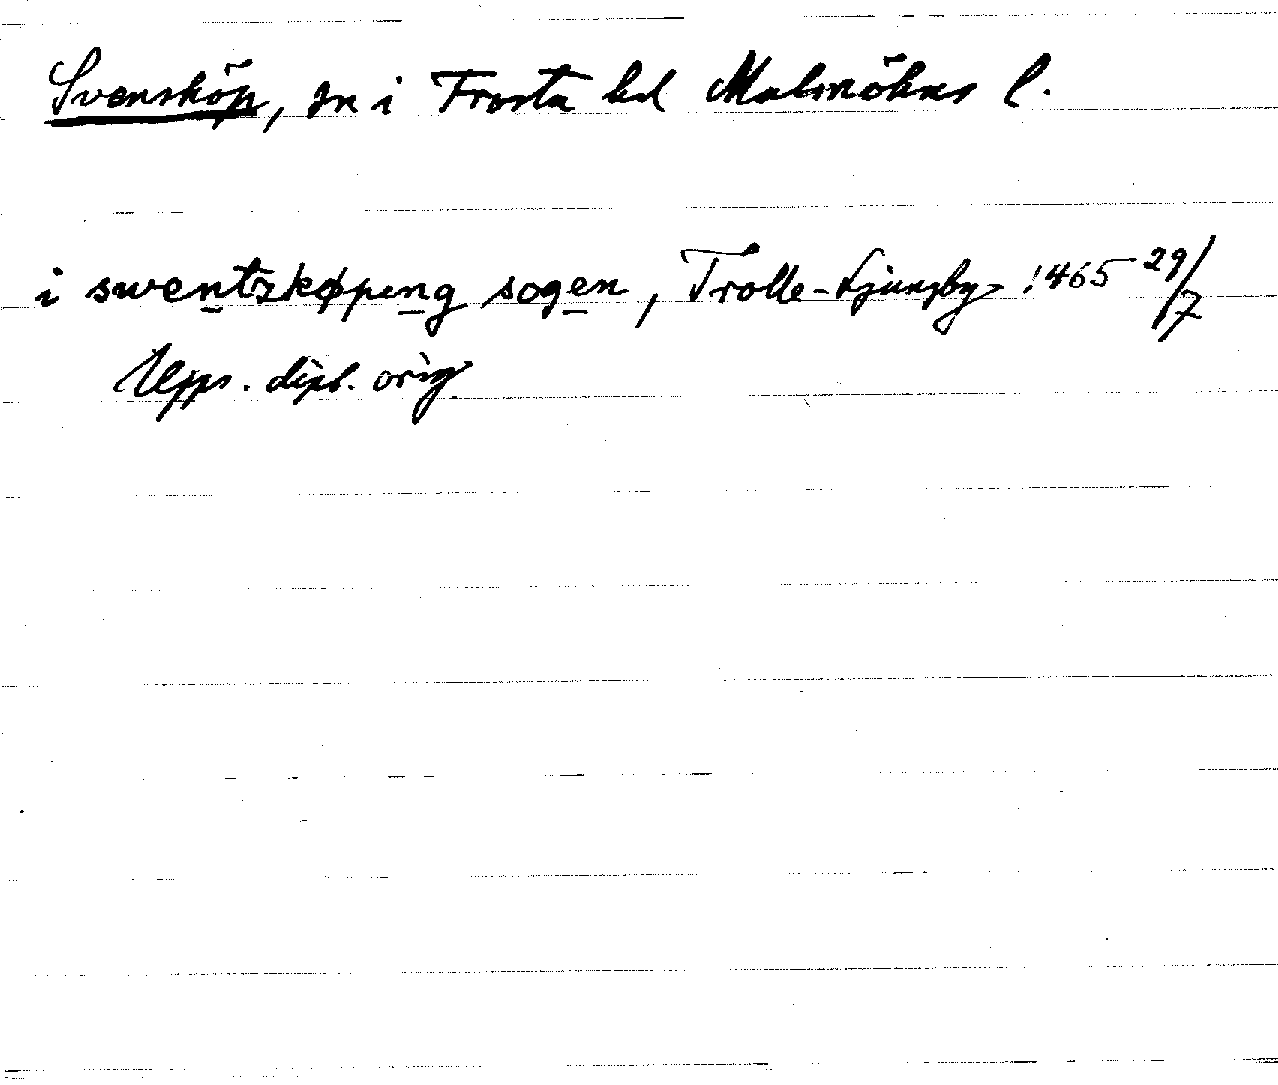 Svensköp, sn i Frosta hd Malmöhus l.
i swentzkøping sogen, Trolle-Ljungby 1465 29/7
Upps. dipl. orig